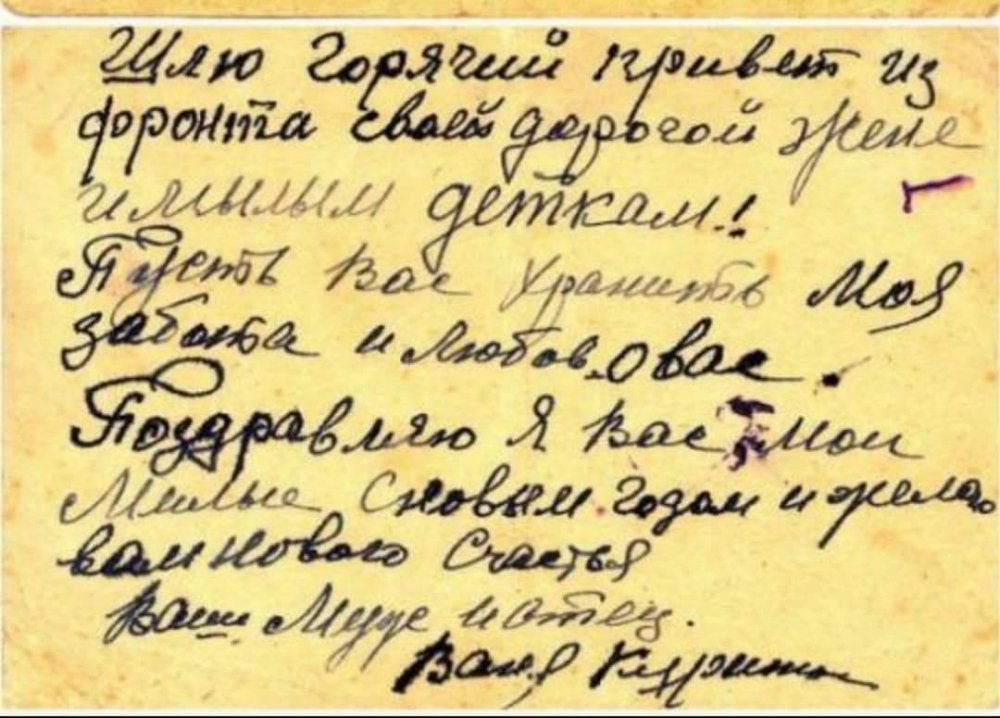 Шлю Горячий привет из
фронта своей дорогой жене
и милым деткам!
Пусть Вас Хранить Моя
забота и Любов. о вас.
Поздравляю Я Вас, Мои
Милые С новым годом и желаю
вам нового Счастья
Ваш Муж и отец.
Ваня